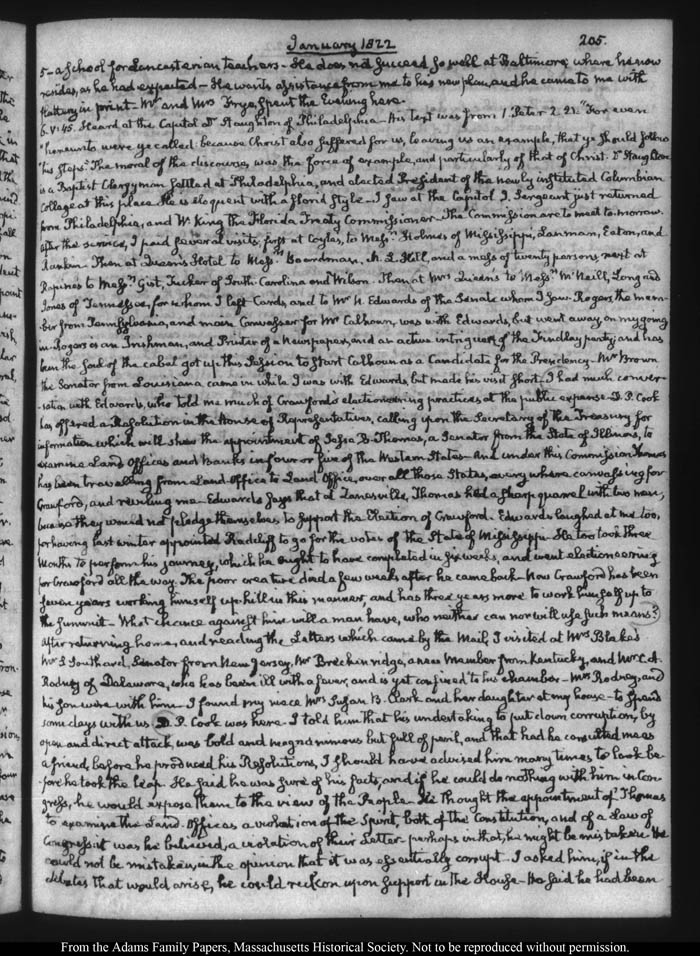 January 1822
205.
5 - a School for Lancasterian teachers - He does not succeed so well at Baltimore, where he now
resides, as he had expected - He wants assistance from me to his new plan, and he came to me with
flattery in print. Mr and Mrs Frye, spent the Evening here.
6. V:45. Heard at the Capitol Dr Staughton of Philadelphia - His text was from 1. Peter 2. 21. "For even
"hereunto were ye called: because Christ also suffered for us, leaving us an example, that ye should follow
"his steps." The moral of the discourse, was the force of example, and particularly of that of Christ. Dr Staughton
is a Baptist Clergyman settled at Philadelphia, and elected President of the newly instituted Columbian
College at this place. He is eloquent with a florid style - I saw at the Capitol J. Sergeant just returned
from Philadelphia, and W. King the Florida Treaty Commissioner. The Commission are to meet to-morrow.
After the service, I paid several visits, first at Coyles, to Messrs Holmes of Mississippi, Lanman, Eaton, and
Rankin. Then at Queen's Hotel to Messrs Boardman, M. L. Hill, and a mess of twenty persons, next at
to Messrs Gist, Tucker of South-Carolina and Wilson. Then at Mrs Queen's to Messrs McNeill, Long and
Jones of Tennessee, for whom I left Cards, and to Mr N. Edwards of the Senate whom I saw. Rogers, the mem-
-ber from Pennsylvania, and main Canvasser for Mr Calhoun, was with Edwards, but went away on my going
in. Rogers is an Irishman, and Printer of a Newspaper, and an active intriguer of the Findlay party; and has
been the soul of the cabal got up this Session to start Calhoun as a Candidate for the Presidency. Mr Brown
the Senator from Louisiana came in while I was with Edwards, but made his visit short. I had much conver-
-sation with Edwards, who told me much of Crawford's electioneering practices at the public expense. D. P. Cook
has offered a Resolution in the House of Representatives, calling upon the Secretary of the Treasury for
information which will shew the appointment of Jesse B. Thomas, a Senator from the State of Illinois, to
examine Land Offices and Banks in four or five of the Western States - And under this Commission Thomas
has been travelling from Land Office to Land Office, over all those States, every where canvassing for
Crawford, and reviling me - Edwards says that at Zanesville, Thomas had a sharp quarrel with two men,
because they would not pledge themselves to support the Election of Crawford. Edwards laughed at me too,
for having last winter appointed Radcliff to go for the votes of the State of Mississippi. He too took three
Months to perform his journey, which he ought to have completed in six weeks, and went electioneering
for Crawford all the way. The poor creature died a few weeks after he came back. Now Crawford has been
seven years working himself up-hill in this manner, and has three years more to work himself up to
the summit - What chance against him will a man have, who neither can nor will use such means?
After returning home, and reading the Letters which came by the Mail, I visited at Mrs Blake's
Mr S. Southard, Senator from New Jersey, Mr Breckinridge, a new Member from Kentucky, and Mr C. A.
Rodney of Delaware, who has been ill with a fever, and is yet confined to his chamber - Mrs Rodney, and
his son were with him - I found my niece Mrs Susan B. Clark and her daughter at my house - to spend
some days with us. D. P. Cook was here. I told him that his undertaking to put down corruption, by
open and direct attack, was bold and magnanimous but full of peril, and that had he consulted me as
a friend, before he produced his Resolutions, I should have advised him many times to look be-
-fore he took the leap. He said he was sure of his facts, and if he could do nothing with him in Con-
gress, he would expose them to the view of the People. He thought the appointment of Thomas
to examine the Land-Offices a violation of the Spirit, both of the Constitution, and of a Law of
Congress it was he believed, a violation of their Letter perhaps in that, he might be mistaken. He
could not be mistaken, in the opinion that it was essentially corrupt. I asked him, if in the
debates that would arise, he could reckon upon support in the House - He said he had been
From the Adams Family Papers, Massachusetts Historical Society. Not to be reproduced without permission.